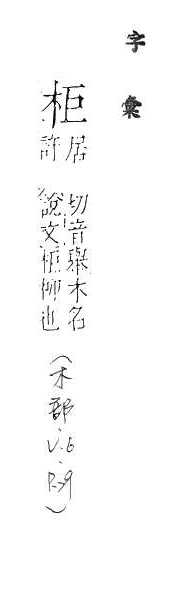 字彙
柜居許切音舉木名說文柜柳也(木部.V.6.P.29)